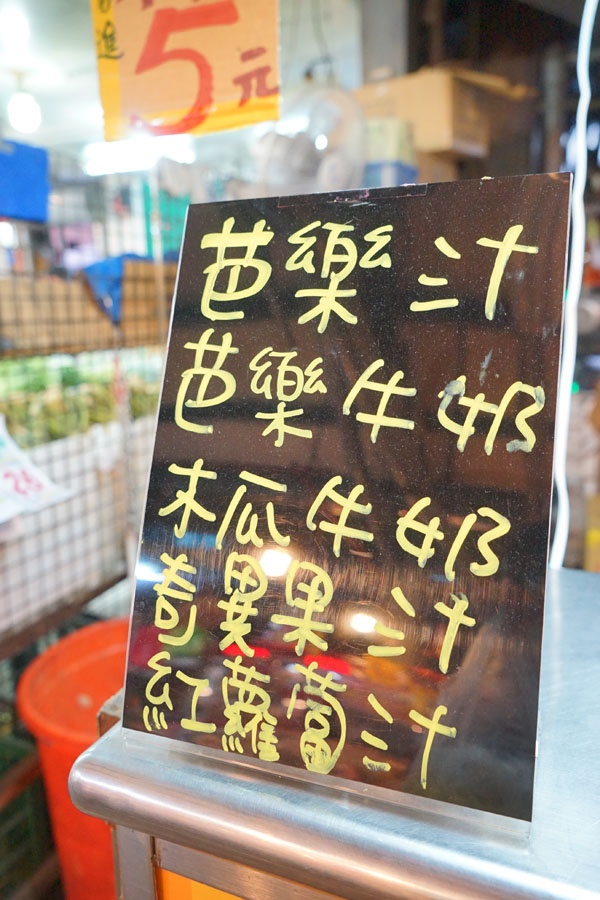 進
5元
芭樂汁
芭樂牛奶
木瓜牛奶
奇異果汁
紅蘿蔔汁